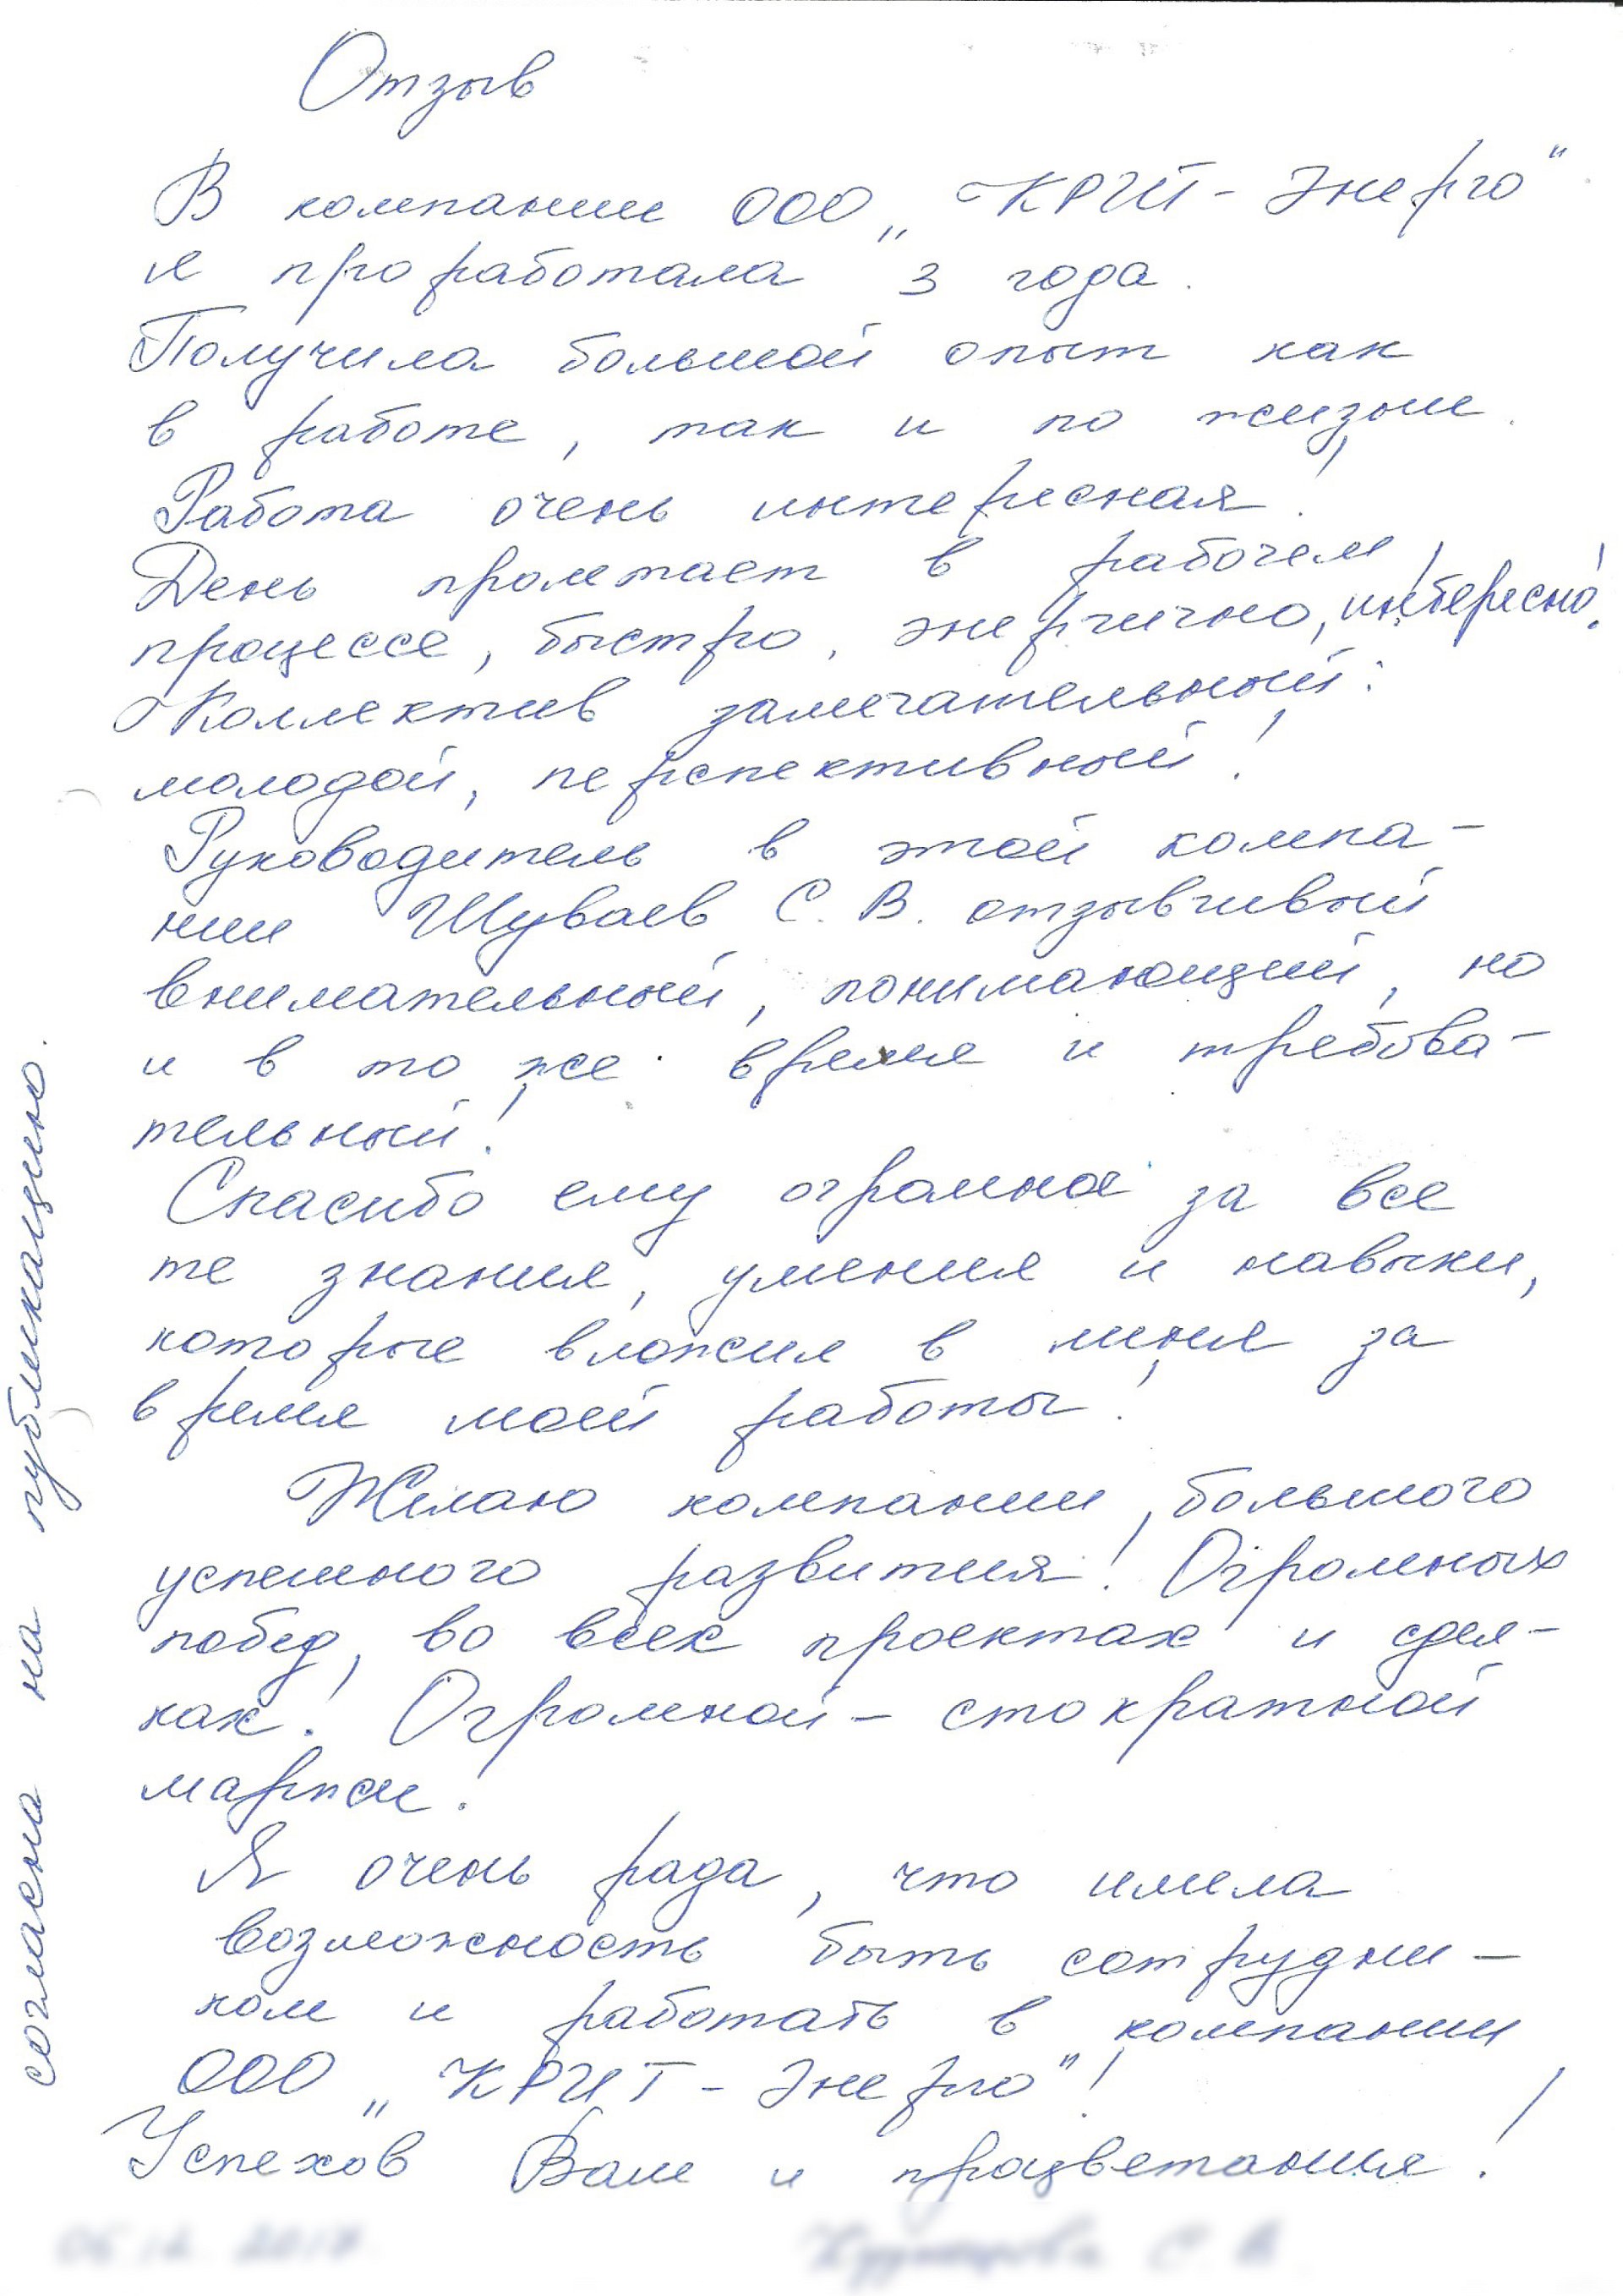 Отзыв
В компании ООО „КРИТ - Энерго"
я проработала 3 года.
Получила большой опыт как
в работе, так и по жизни.
Работа очень интересная!
День пролетает в рабочем
процессе, быстро, энергично, интересно!
Коллектив замечательный:
молодой, перспективный!
Руководитель в этой компа-
нии Шуваев С. В. отзывчивый
внимательный, понимающий, но
и в то же время и требова-
тельный!
Спасибо ему огромное за все
те знания, умения и навыки,
которые вложил в меня за
время моей работы!
Желаю компании, большого
успешного развития! Огромных
побед, во всех проектах и сдел-
ках! Огромной - стократной
маржи!
Я очень рада, что имела
возможность быть сотрудни-
ком и работать в компании
ООО „КРИТ - Энерго"!
Успехов Вам и процветания!
согласна на публикацию.